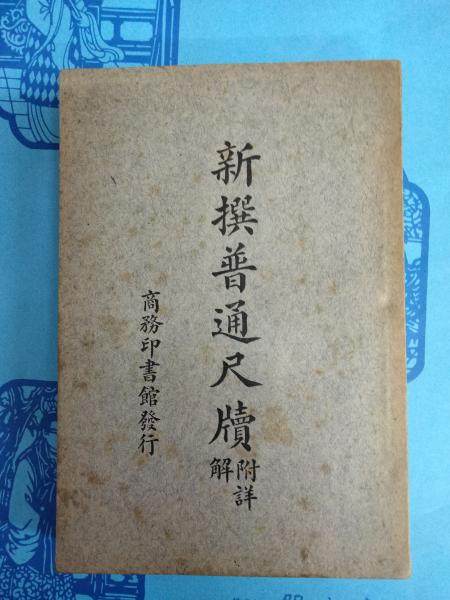 新撰普通尺牘
附詳
解
商務印書館發行